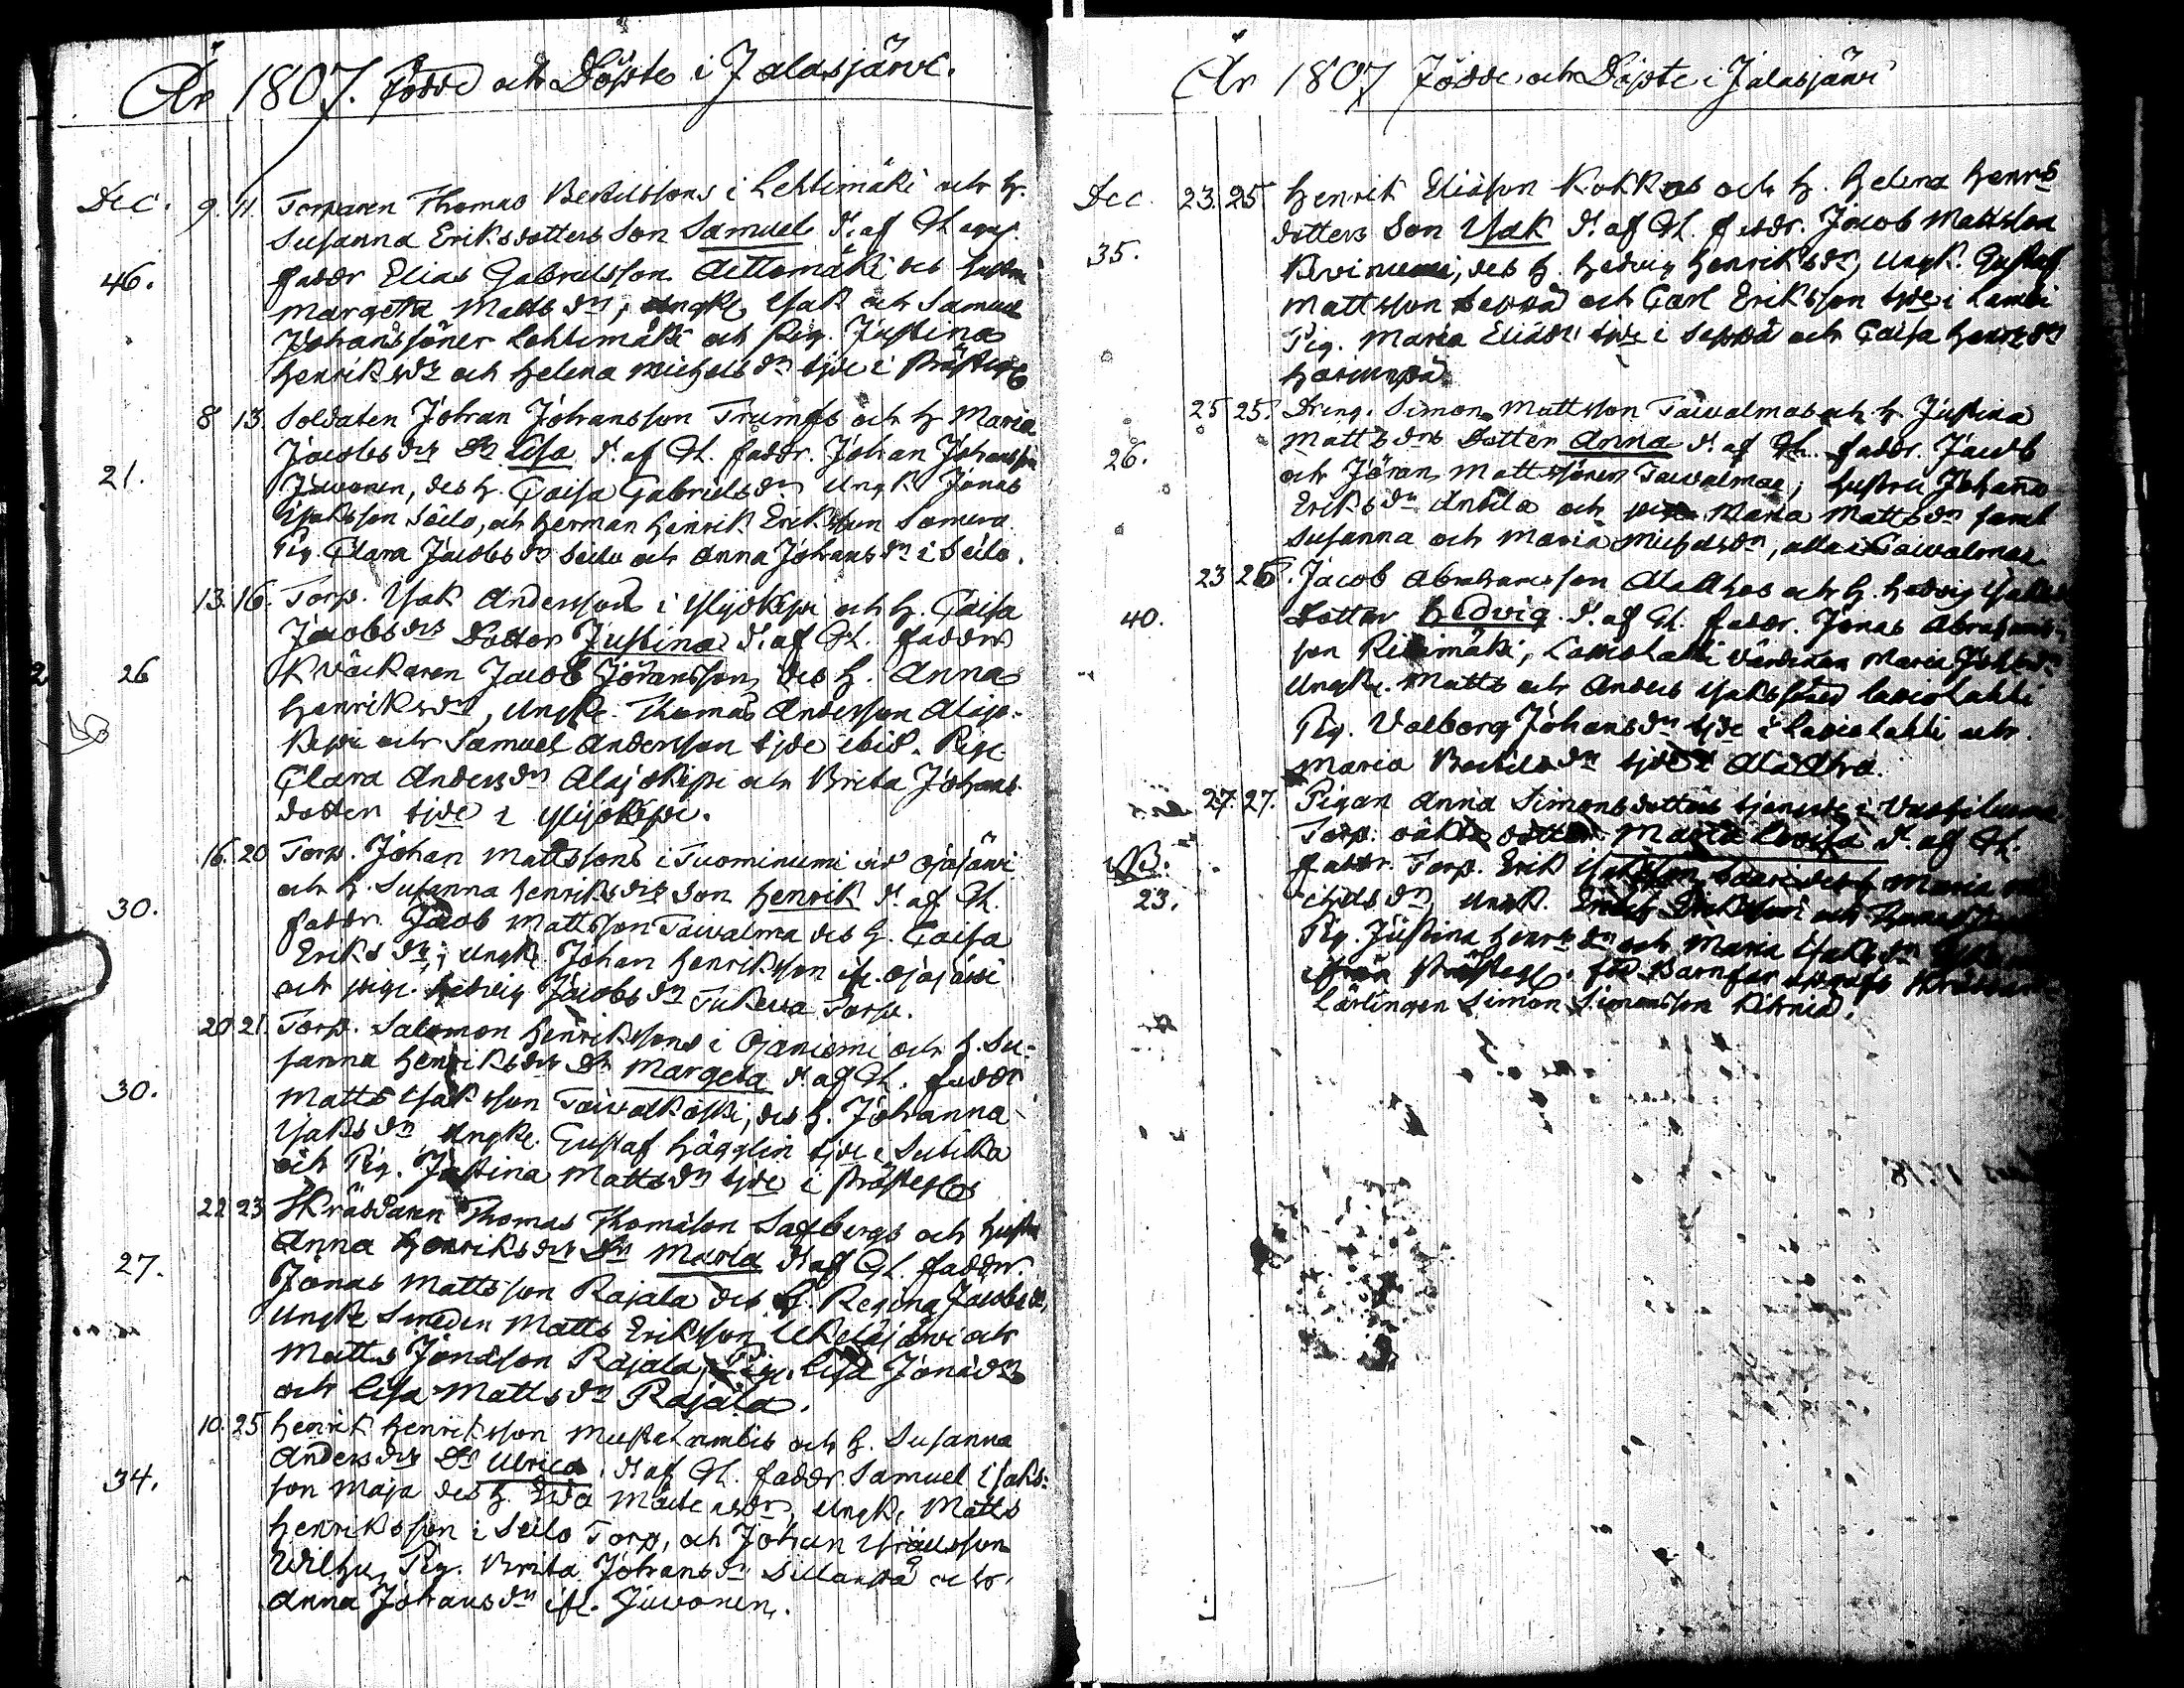 År 1807. Födde och Döpte i Jalasjärvi.
Dec. 9. 11. Torparen Thomas Bertilssons i Lehtimäki och h.
Susanna Eriksdotters Son Samuel d. af Gl.
46. faddr Elias Gabrielsson Aittomäki des hustru
Margeta Matts dr, Ungk. Isak och Samuel
Johans söner Lehtimäki och Pig. Justina
Henriks dr och Helena Michels dr tjde i Prästeg
8 13. Soldaten Johan Johansson Trumfs och h Maria
Jacobs drs Dr Lisa d. af Gl. faddr. Johan Johansson
21. Juvonen, des h. Caisa Gabriels dr Ungk Jonas
Isaksson Seilo, och Herman Henrik Eriksson Somero
Pig. Clara Jacobs dr Seilo och Anna Johans dr i Seilo.
13. 16. Torp. Isak Anderssons i Ylijokipi och h. Caisa
Jacobs drs Dotter Justina d. af Gl. faddr
26 Qväckaren Jacob Göransson, des h. Anna
Henriks dr, Ungk. Thomas Andersson Alajo-
kipi och Samuel Andersson tjde ibid. Pig
Clara Anders dr Alajokipi och Brita Johans
dotter tjde i Ylijokipi.
16. 20 Torp. Johan Mattssons i Tuominiemi vid Ojajärvi
och h. Susanna Henriks drs Son Henrik d. af Gl.
30. faddr. Jacob Mattsson Taivalma des h. Caisa
Eriks dr; Ungk. Johan Henriksson if. Ojajärvi
och pig. Hedvig Jacobs dr Tukeva Torp.
20 21. Torp. Salomon Henrikssons i Ojaniemi och h. Su-
sanna Henriks drs Dr Margeta d. af Gl. faddr
30. Matts Isaksson Taivalkoski, des h. Johanna
Isaks dr Ungk. Gustaf Hägglin tjde i Luhka
och Pig. Justina Matts dr tjde i Prästeg
22 23 Skräddaren Thomas Thomasson Safbergs och hustr
Anna Henriks drs Dr Maria d. af Gl. faddr.
27. Jonas Mattsson Rajala des h. Regina Jacobs dr,
Ungk Smeden Matts Eriksson Ukelajärvi och
Matts Jonasson Rajala, Pig. Lisa Jonas dr
och Lisa Matts dr Rajala.
10. 25 Henrik Henriksson Mustalambis och h. Susanna
Anders drs Dr Ulrica d. af Gl. faddr. Samuel Isaks-
34. son Maja des h. Eva dr, Ungk. Matts
Henriksson i Seilo Torp, och Johan Israelsson
Wilhu, Pig. Brita Johans dr Sillanpä och
Anna Johans dr if. Juvonen.
År 1807 Födde och Döpte i Jalasjärvi
Dec. 23. 25 Henrik Eliäson Kokkos och h. Helena Henrs
dotters Son Isak d. af Gl. faddr. Jacob Mattsson
35. Keviniemi, des h. Hedvig Henriks dr, Ungk. Gustaf
Mattsson Seppä och Carl Eriksson tjde i Lambi
Pig. Maria Elias dr tjde i Seppä och Caisa Henr dr
Harjunpä
25 25. Dreng. Simon Mattsson Taivalmas och h. Justina
Matts drs Dotter Anna d. af Gl. faddr. Jacob
26. och Jöran Matts söner Taivalmaa, hustru Johanna
Eriks dr Antila och Maria Matts dr samt
Susanna och Maria Michels dr, alla i Taivalmaa
23 26. Jacob Abrahamsson Alatthos och h. Hedvig Isaks
40. Dotter Hedvig d. af Gl. faddr. Jonas Abrahams-
son Riimäki, Lasiolahti Värdinan Maria dr
Ungk. Matts och Anders Isaks söner Lasiolahti
Pig. Valborg Johans dr tjde i Lasiolahti och
Maria Bertils dr tjde i Ala
27. 27. Pigan Anna Simonsdotters tjenande i
NB. Torp. oäkta dotter Maria Lovisa d. af Gl.
faddr. Torp. Erik Isaksson des h Maria
23. chels dr, Ungk. Eriksson och
Pig. Justina Henr dr och Maria Isaks dr
ifrån Prästeg. Barnfar
Lärlingen Simon Simonsson Kihniä.